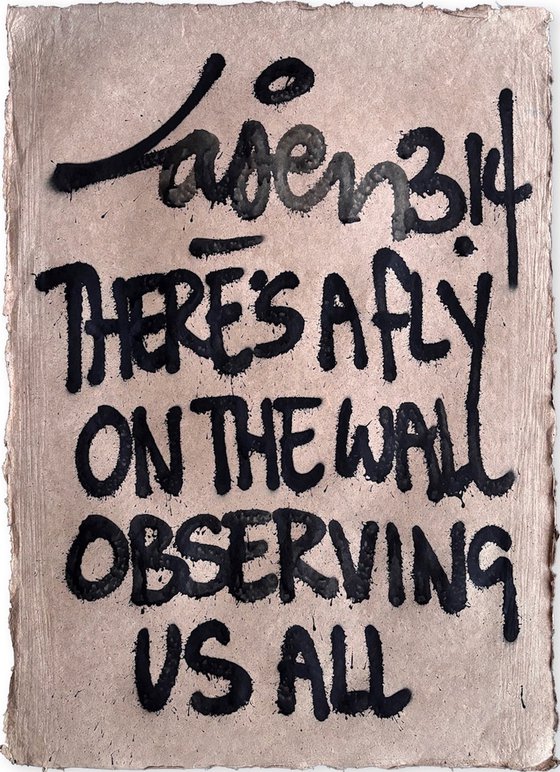 Laser 3.14
THERE'S A FLY
ON THE WALL
OBSERVING
US ALL